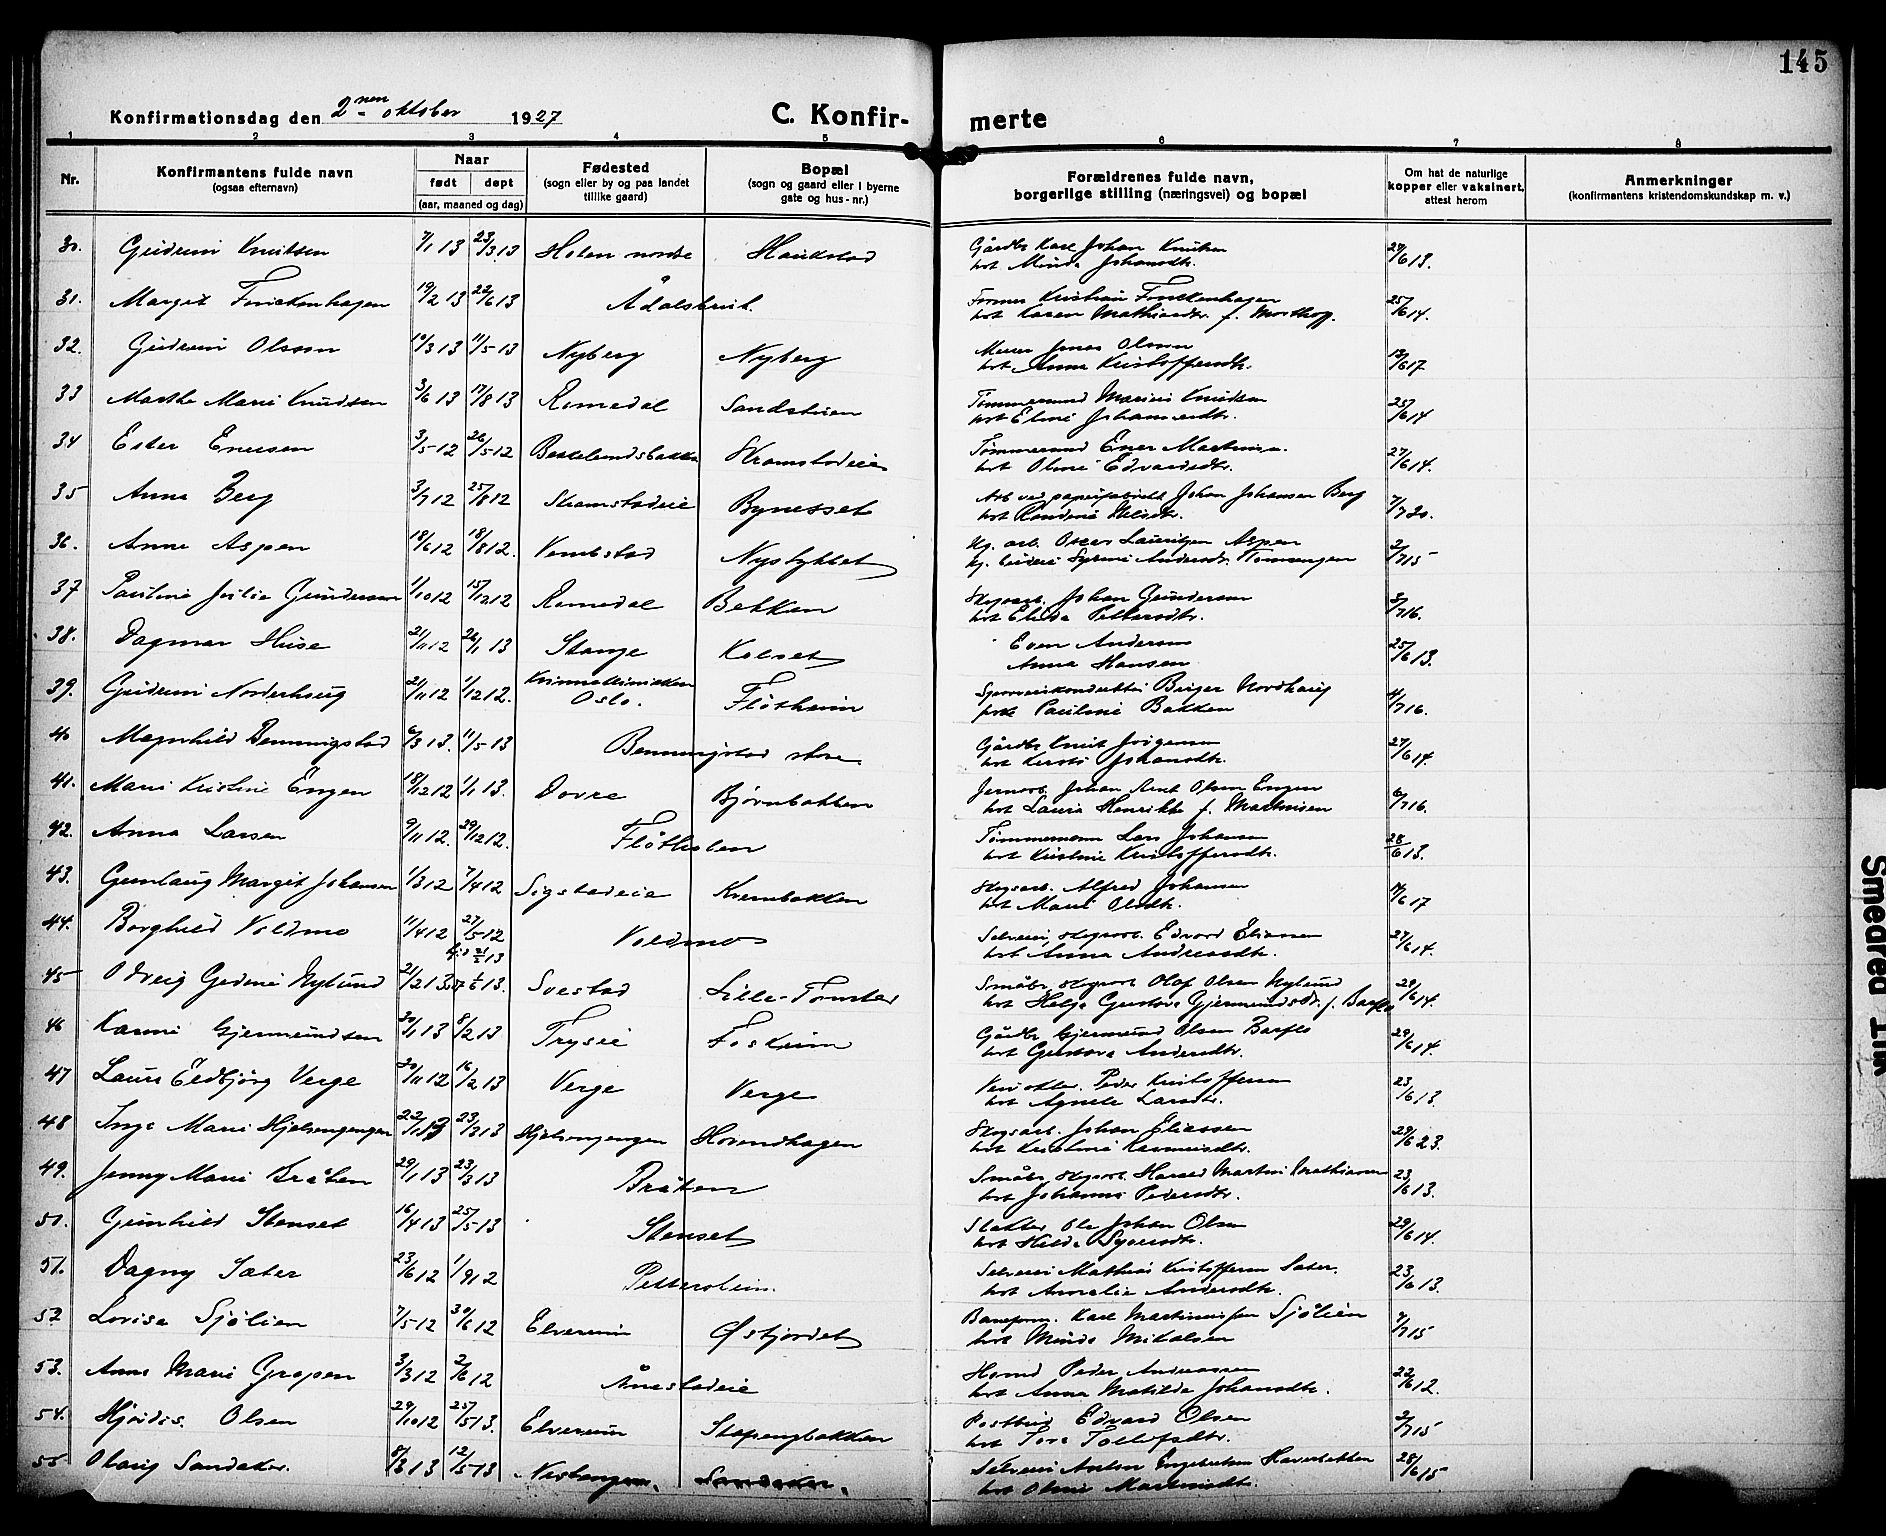 145
Konfirmationsdag den 2nen oktober 1927
C. Konfirmerte
1 2 3 4 5 6 7 8
Nr.
Konfirmantens fulde navn
(ogsaa efternavn)
Naar
født døpt
(aar, maaned og dag)
Fødested
(sogn eller by og paa landet
tillike gaard)
Bopæl
(sogn og gaard eller i byerne
gate og hus-nr.)
Forældrenes fulde navn,
borgerlige stilling (næringsvei) og bopæl
Om hat de naturlige
kopper eller vaksinert,
attest herom
Anmerkninger
(konfirmantens kristendomskundskap m. v.)
30. Gudrun Knutsen 7/1 13 23/3 13 Holen nordre Haukstad Gårdbr Karl Johan Knutsen
hst Minda Johansdtr. 13.
31. Margit Frickenhagen 19/2 13 22/6 13 Ådalsbruk Former Kristian Frickenhagen
hst Karen Mathiasdtr f. 25/6 14.
32. Gudrun Olsson 13 11/5 13 Nyberg Nyberg Murer Jonas Olsson
hst. Anna Kristoffersdtr. 17
33 Marthe Marie Knudsen 3/6 13 17/8 13 Romedal Tømmermand Marius Knudsen
hst Eline Johannesdtr. 25/6 14
34 Ester Enersen 3/5 12 26/5 12 Bekkelundsbakken Skramstadeie Tømmermand Ener Martinsen
hst Oline Edvardsdtr. 27/6 14.
35 Anna Berg 3/7 12 25/8 12 Skramstadeie Bynesset Arb ved papirfabrikk Johan Johansen Berg
hst Randine Nilsdtr. 7/7 20.
36. Anne Aspen 18/6 12 18/8 12. Vembstad Nystykket Ug. arb. Oscar Lauritzen Aspen
2/7 15
37 Pauline Julie Gundersen 1/10 12 15/12 12 Romedal Bekken Skogsarb. Johan Gundersen
hst Elida Pettersdtr. 16.
38. Dagmar Huse 21/11 12 26/1 13 Stange Kolset Even Andersen
Anna Hansen 25/6 13.
39. Gudrun Nordhaug 21/11 12 1/12 12. Kvinneklinikken
Oslo. Fløtheim Sporveiskonduktør Birger Nordhaug
Pauline Bakken 4/7 16.
40 Magnhild Benningstad 6/3 13. 11/5 13 Benningstad store Gårdbr Knut Jørgensen
hst Kersti Johansdtr. 27/6 14.
41. Marie Kristine Engen 18/12 12 1/1 13. Dovre Bjørnbakken Jernarb. Johan Arnt Olsen Engen
hst Laura Henrikke f. Martinsen 6/7 16.
42. Anna Larsen 9/11 12. 29/12 12. Fløtholen Tømmermann Lars Johansen
hst Kristine Kristoffersdtr. 28/6 13.
43. Gunlaug Margit Johansen 1/3 12 7/4 12 Sigstadeie Kvernbakken Skogsarb. Alfred Johansen
hst Marie Olsdtr. 17
44. Borghild Voldmo 11/4 12 27/5 12 Voldmo Selveier, skogsarb. Edvard Eliassen
hst Anna Andreasdtr. 27/6 14.
45 Odveig Gudrun Nylund 21/2 13 13. Svestad Lille-Tomter Småbr, skogsarb Olaf Olsen Nylund
hst Helga Gustava Gjermundsdtr. f. Barflo 29/6 14.
46 Karine Gjermundsen 30/1 13 8/2 13 Trysil Foskum Gårdbr Gjermund Olsen Barflo
hst Gustava Andersdtr. 29/6 14.
47 Laura Eldbjørg Verge 30/11 12 16/2 13 Verge Verge Peder Kristoffersen
hst Agnete Larsdtr. 23/6 13.
48 Inga Marie Hjelsengengen 22/1 13 23/3 13 Hjelsengengen Hovendhagen Skogsarb. Johan Eliassen
hst Kristine 29/6 23.
49. Jenny Marie Bråten 29/1 13 23/3 13 Bråten Småbr, skogsarb. Harald Martin Mathiasen
hst Johanne Pedersdtr. 23/6 13.
50. Gunhild Stenset 16/4 13 25/5 13 Stenset Slakter Ole Johan Olsen
hst Hilda Syversdtr. 29/6 14.
51. Dagny Sæter 23/6 12 1/9 12 Petterslien. Selveier Mathias Kristoffersen Sæter.
hst Amalie Andersdtr. 23/6 13.
52 Lovise Sjølien 7/5 12 30/6 12 Elverum Østjordet Baneform. Karl Martiniussen Sjølien
hst Minda Mikalsen 7/7 15
53. Anne Marie Gropen 3/3 12 2/6 12 Ånestadeie Peder Andreassen
hst Anna Matilde Johansdtr. 22/6 12.
54. Hjørdis Olsen 29/10 12 25/5 13. Elverum Stapengbakken Postbud Edvard Olsen
hst Tora Tollefsdtr. 2/7 15
55 Olaug Sandaker. 8/3 13 12/5 13 Nustengen. Sandaker. Selveier Anton Engebretsen
hst Oline Martinsdtr. 28/6 15
Smeared Ink